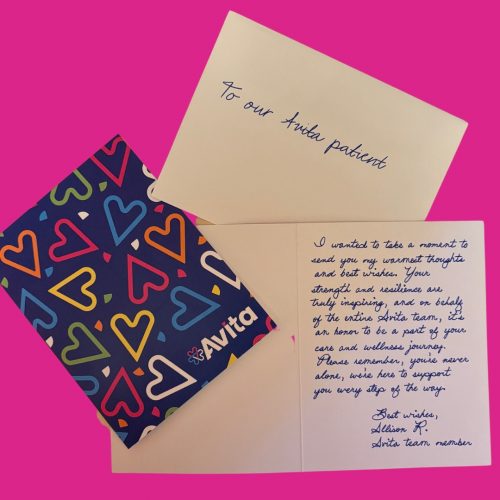 To our Avita patient
Avita
I wanted to take a moment to
send you my warmest thoughts
and best wishes. Your
strength and resilience are
truly inspiring, and on behalf
of the entire Avita team, it's
an honor to be a part of your
care and wellness journey.
Please remember, you're never
alone, we're here to support
you every step of the way.
Best wishes,
Allison R.
Avita team member